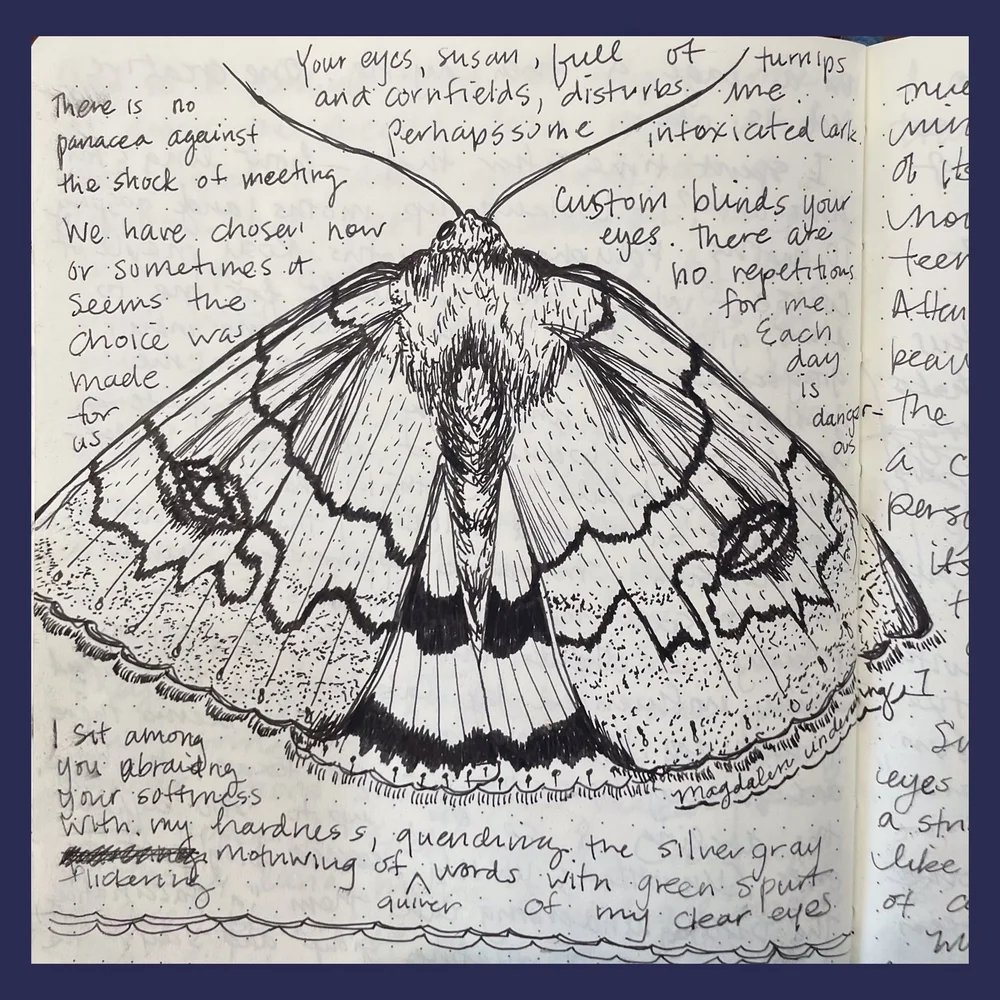 Your eyes, susan, full of turnips
and cornfields, disturbs me.
Perhaps some intoxicated lark
There is no
panacea against
the shock of meeting
We have chosen now
or sometimes it
seems the
choice was
made
for
us
Custom blinds your
eyes. There are
no repetitions
for me.
Each
day
is
danger-
ous
magdalen underwing
I sit among
you abrading
your softness
with my hardness, quenching the silver gray
flickering mothwing of quiver words with green spurt
of my clear eyes
of its
teen
beau
the
a c
pers
its
I
eyes
a str
like
of